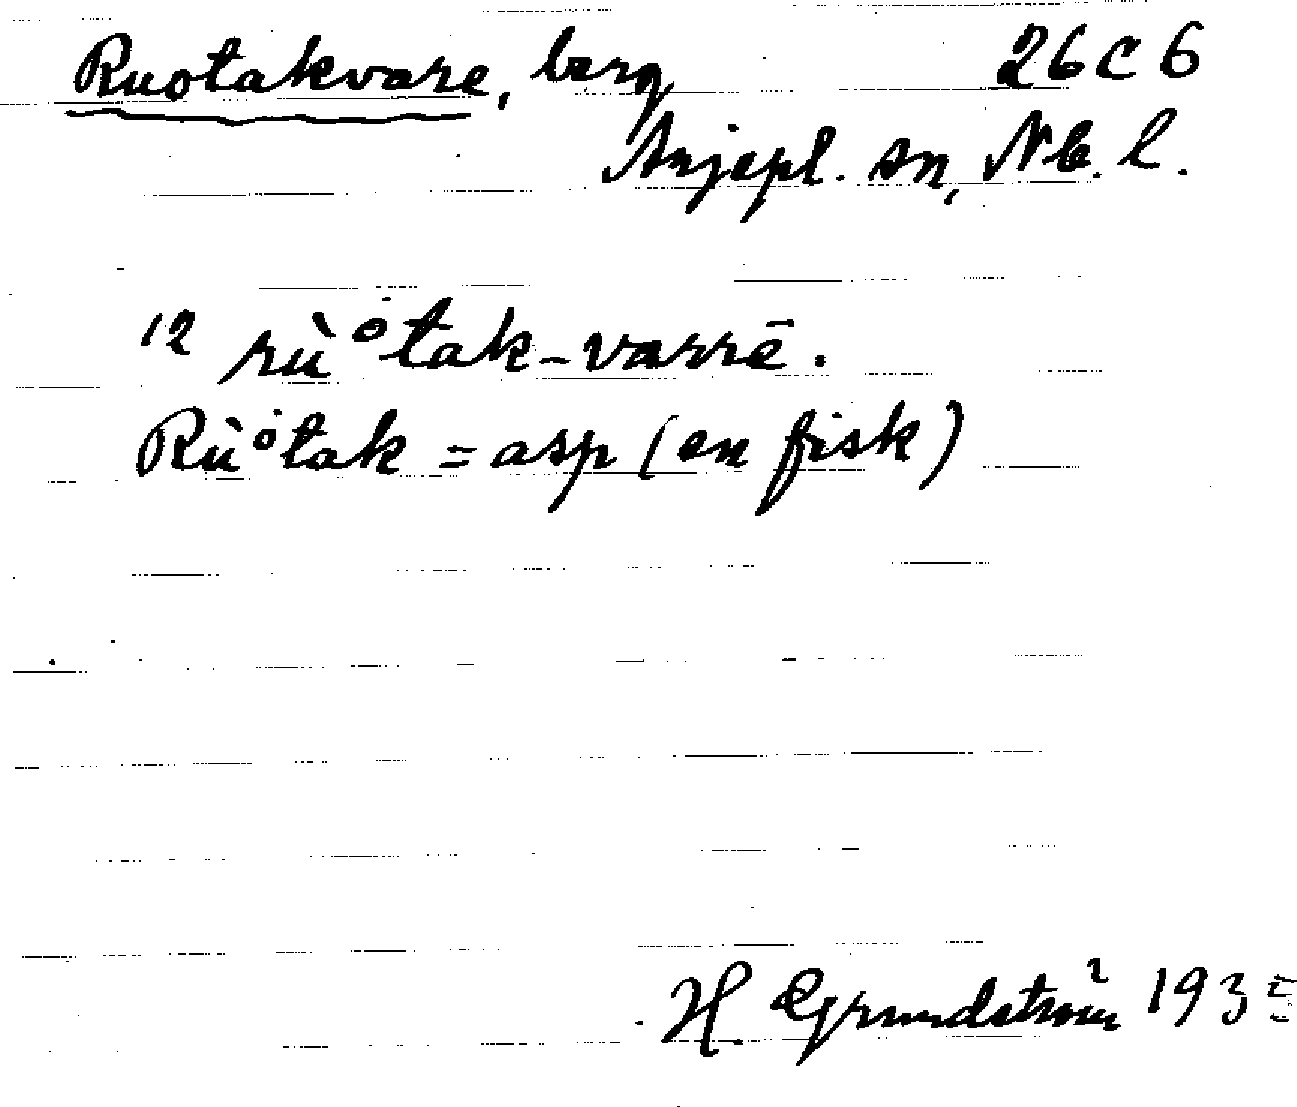 Ruotakvare, berg 26 C 6
Arjepl. sn, Nb. l.
12 rù°tak-varrē.
Rù°tak = asp (en fisk)
H. Grundström 1935